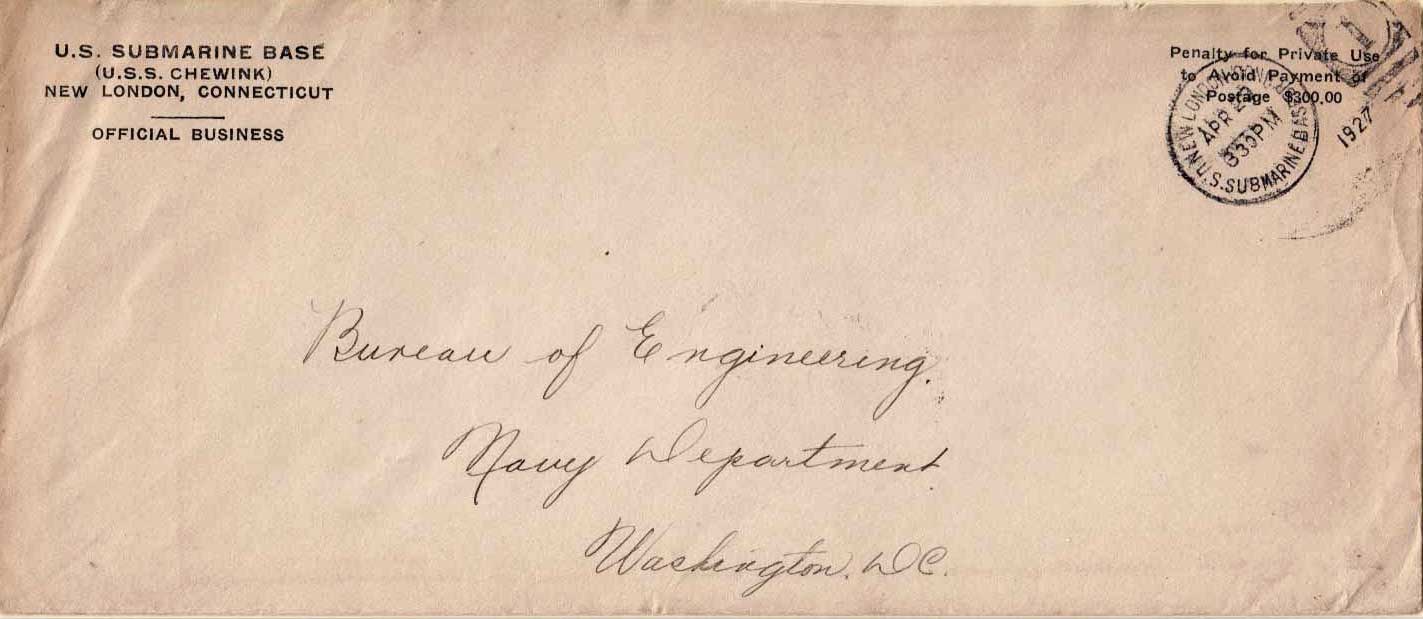 U.S. SUBMARINE BASE
(U.S.S. CHEWINK)
NEW LONDON, CONNECTICUT
OFFICIAL BUSINESS
Penalty for Private Use
to Avoid Payment of
Postage $300.00
NEW LONDON
U.S. SUBMARINE BASE
APR
330PM
1927
1
Bureau of Engineering.
Navy Department
Washington. DC.